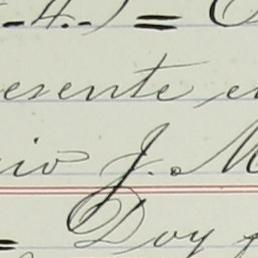 -4.-) =
esente e
io J. M
= Doy f